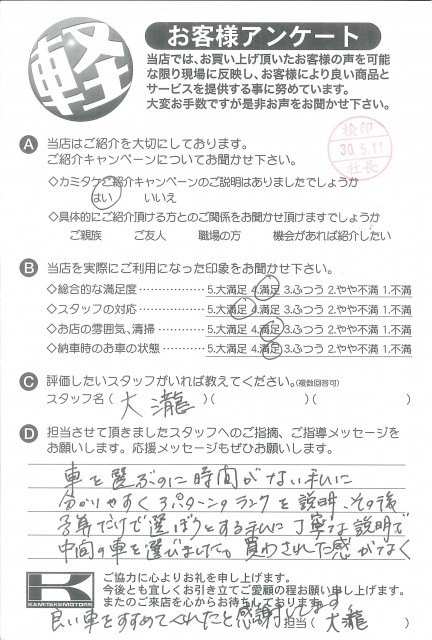 軽
お客様アンケート
当店では、お買い上げ頂いたお客様の声を可能
な限り現場に反映し、お客様により良い商品と
サービスを提供する事に努めています。
大変お手数ですが是非お声をお聞かせ下さい。
検印
30.5.11
社長
A 当店はご紹介を大切にしております。
ご紹介キャンペーンについてお聞かせ下さい。
◇カミタケご紹介キャンペーンのご説明はありましたでしょうか
はい いいえ
◇具体的にご紹介頂ける方とのご関係をお聞かせ頂けますでしょうか
ご親族 ご友人 職場の方 機会があれば紹介したい
B 当店を実際にご利用になった印象をお聞かせ下さい。
◇総合的な満足度 ・・・・・・・・・・・・ 5.大満足 4.満足 3.ふつう 2.やや不満 1.不満
◇スタッフの対応 ・・・・・・・・・・・・ 5.大満足 4.満足 3.ふつう 2.やや不満 1.不満
◇お店の雰囲気、清掃 ・・・・・・・・ 5.大満足 4.満足 3.ふつう 2.やや不満 1.不満
◇納車時のお車の状態 ・・・・・・・・ 5.大満足 4.満足 3.ふつう 2.やや不満 1.不満
C 評価したいスタッフがいれば教えてください。(複数回答可)
スタッフ名( 大瀧 )( )( )
D 担当させて頂きましたスタッフへのご指摘、ご指導メッセージを
お願いします。応援メッセージもぜひお願いします。
車を選ぶのに時間がない私に
分かりやすく3パターンのランクを説明、その後
予算だけで選ぼうとする私に丁寧な説明で
中間の車を選びました。買わされた感がなく
K
KAMITAKEMOTORS
ご協力に心よりお礼を申し上げます。
今後とも宜しくお引き立てご愛顧の程お願い申し上げます。
またのご来店を心からお待ちしております。
良い車をすすめてくれたと感謝しています
担当( 大瀧 )